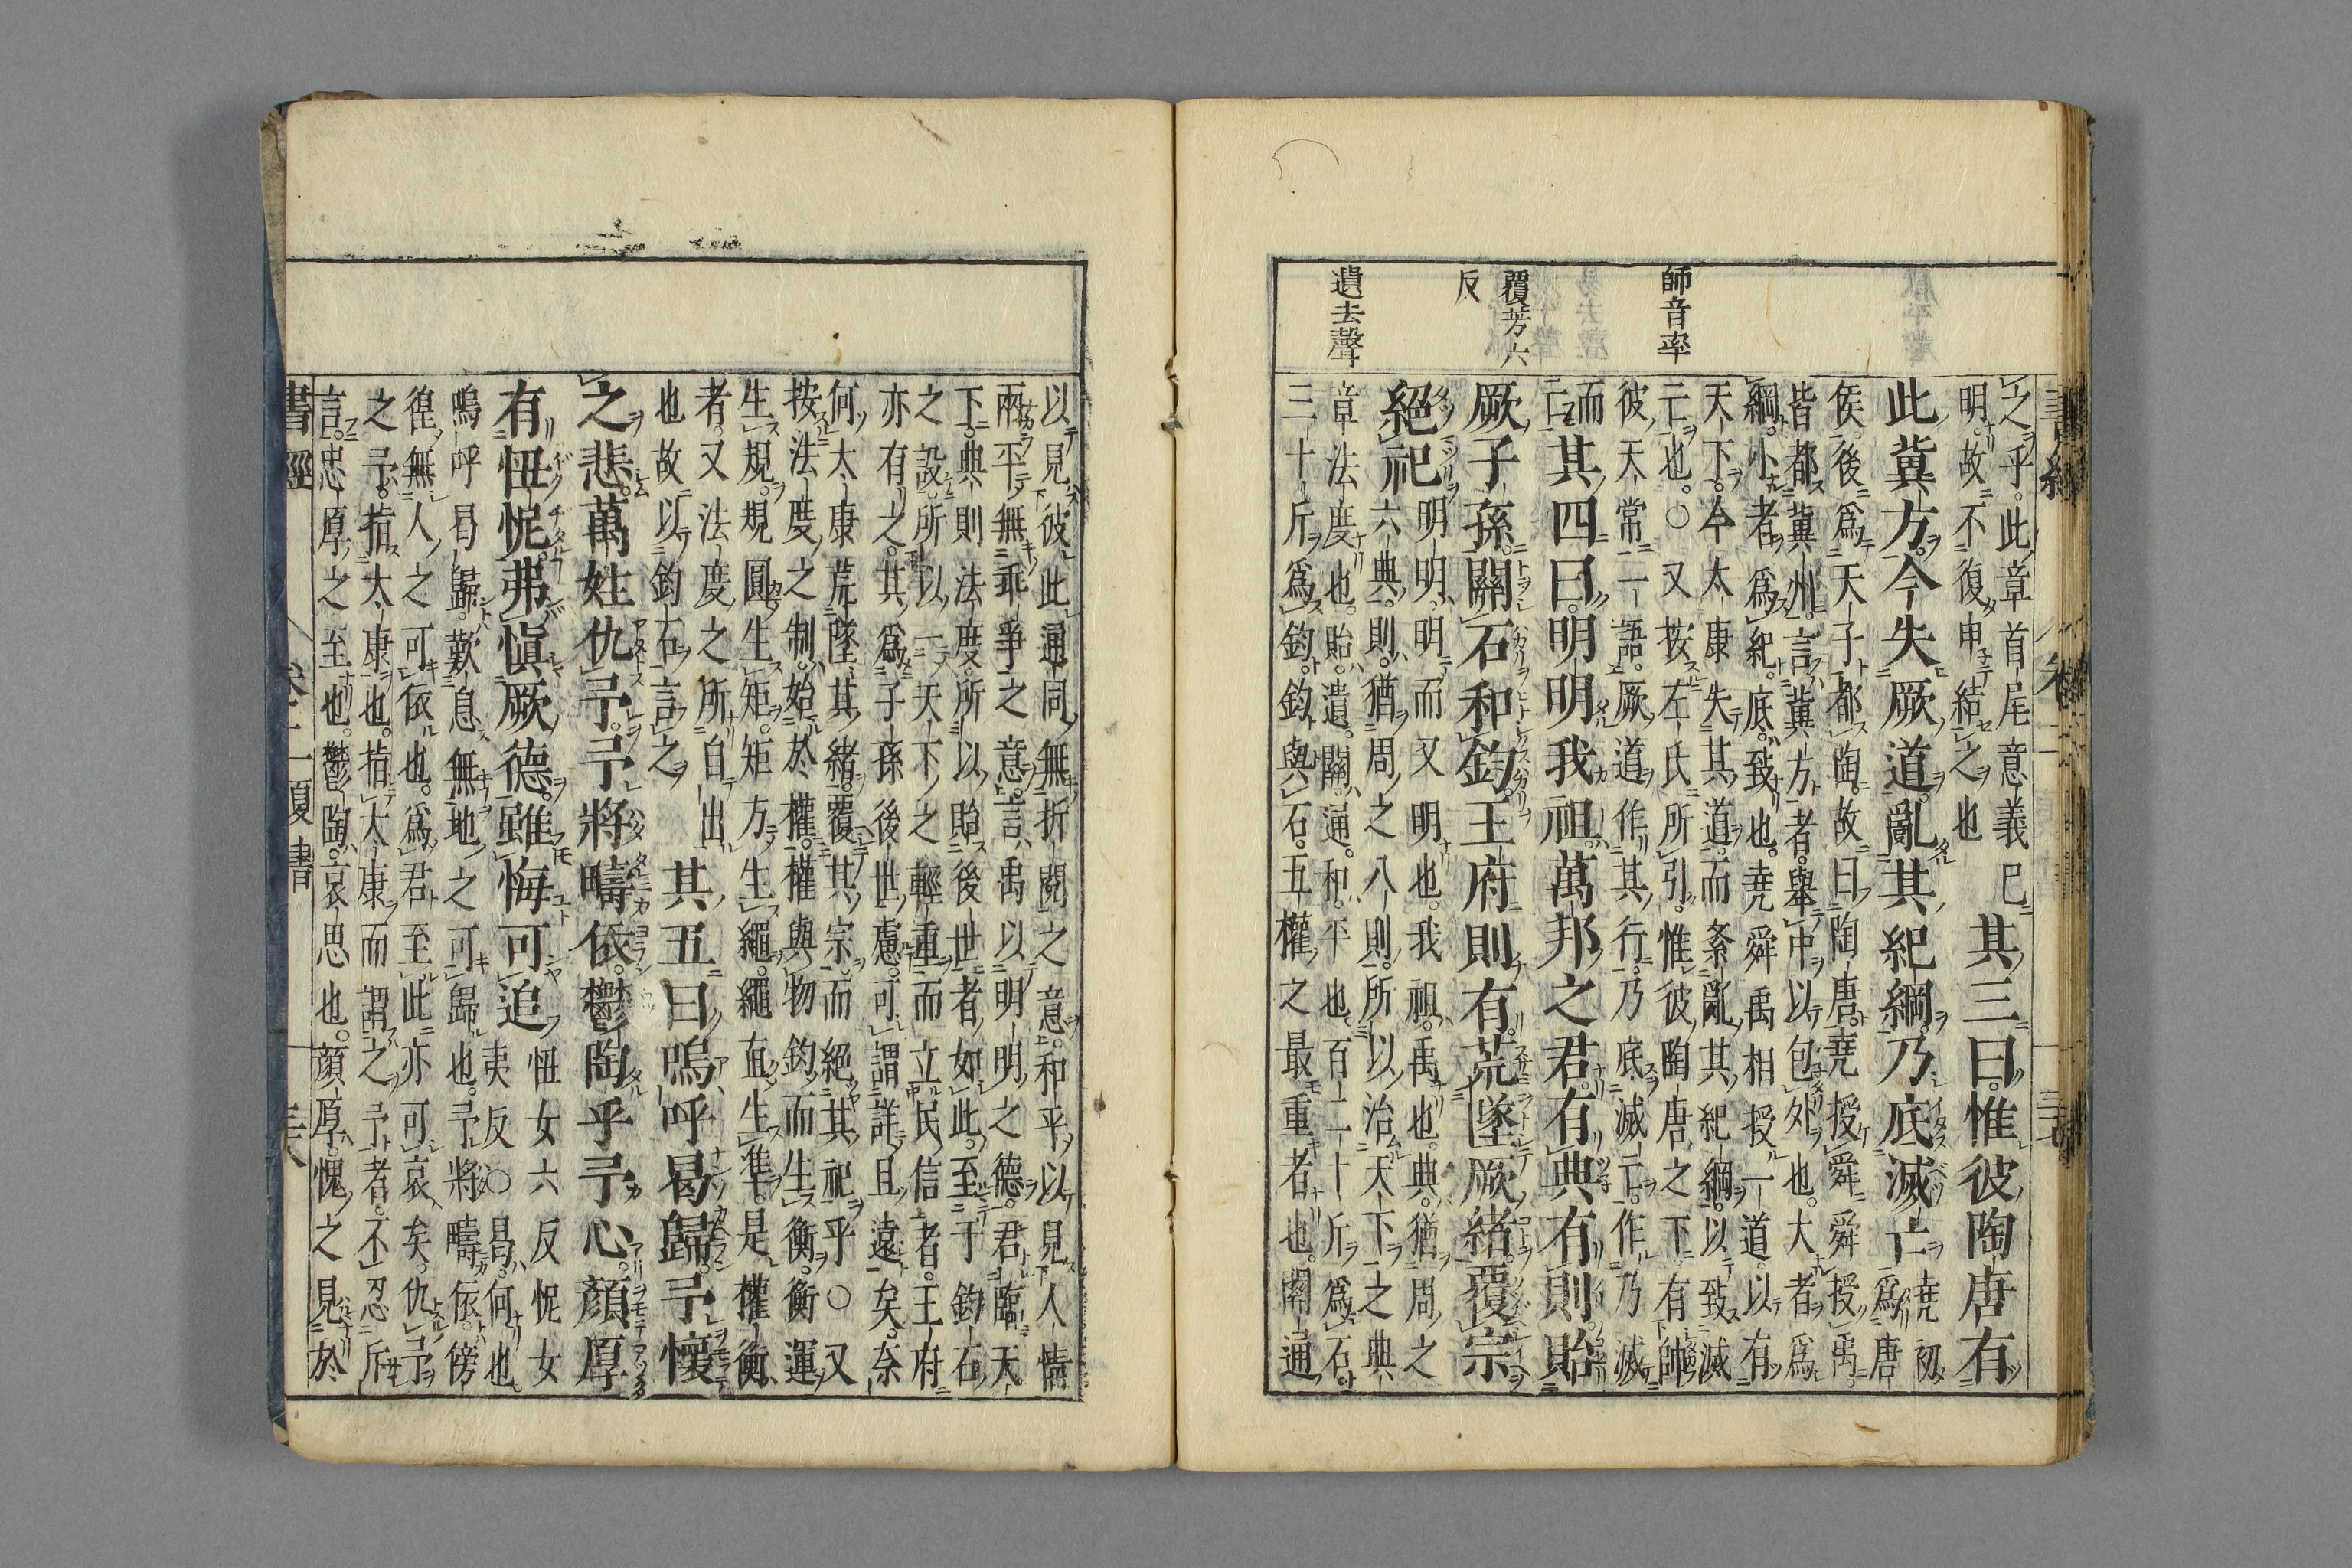 書經 卷二
師音率
覆芳六
反
遺去聲
之乎。此章首尾意義已
明。故不復申結之也
其三曰。惟彼陶唐有
此冀方。今失厥道。亂其紀綱。乃底滅亡
堯初
爲唐
侯。後爲天子都陶。故曰陶唐。堯授舜舜授禹。
皆都冀州。言冀方者。舉中以包外也。大者爲
綱。小者爲紀。底。致也。堯舜禹相授一道。以有
天下。今太康失其道。而紊亂其紀綱。以致滅
亡也。○又按左氏所引。惟彼陶唐之下有帥
彼天常一語。厥道作其行。乃底滅亡。作乃滅
而
亡
其四曰。明明我祖。萬邦之君。有典有則。貽
厥子孫。關石和鈞。王府則有。荒墜厥緒。覆宗
絕祀
明明。明而又明也。我祖。禹也。典。猶周之
六典。則。猶周之八則。所以治天下之典
章法度也。貽。遺。關。通。和。平也。百二十斤爲石。
三十斤爲鈞。鈞與石。五權之最重者也。關通
以見彼此通同無折閱之意。和平以見人情
兩平無乖爭之意。言禹以明明之德。君臨天
下。典則法度。所以貽後世者如此。至于鈞石
之設。所以一天下之輕重而立民信者。王府
亦有之。其爲子孫後世慮。可謂詳且遠矣。柰
何太康荒墜其緒。覆其宗。而絕其祀乎○又
按法度之制。始於權。權與物鈞而生衡。衡運
生規。規圓生矩。矩方生繩。繩直生準。是權衡
者。又法度之所自出
也故以鈞石言之
其五曰嗚呼曷歸。予懷
之悲。萬姓仇予。予將疇依。鬱陶乎予心。顏厚
有忸怩。弗愼厥德。雖悔可追
忸女六反怩女
夷反○曷。何也。
嗚呼曷歸。歎息無地之可歸也。予將疇依。傍
徨無人之可依也。爲君至此亦可哀矣。仇予
之予。指太康也。指太康而謂之予者。不忍斥
言。忠厚之至也。鬱陶。哀思也。顏厚。愧之見於
書經 卷二 夏書 三十八